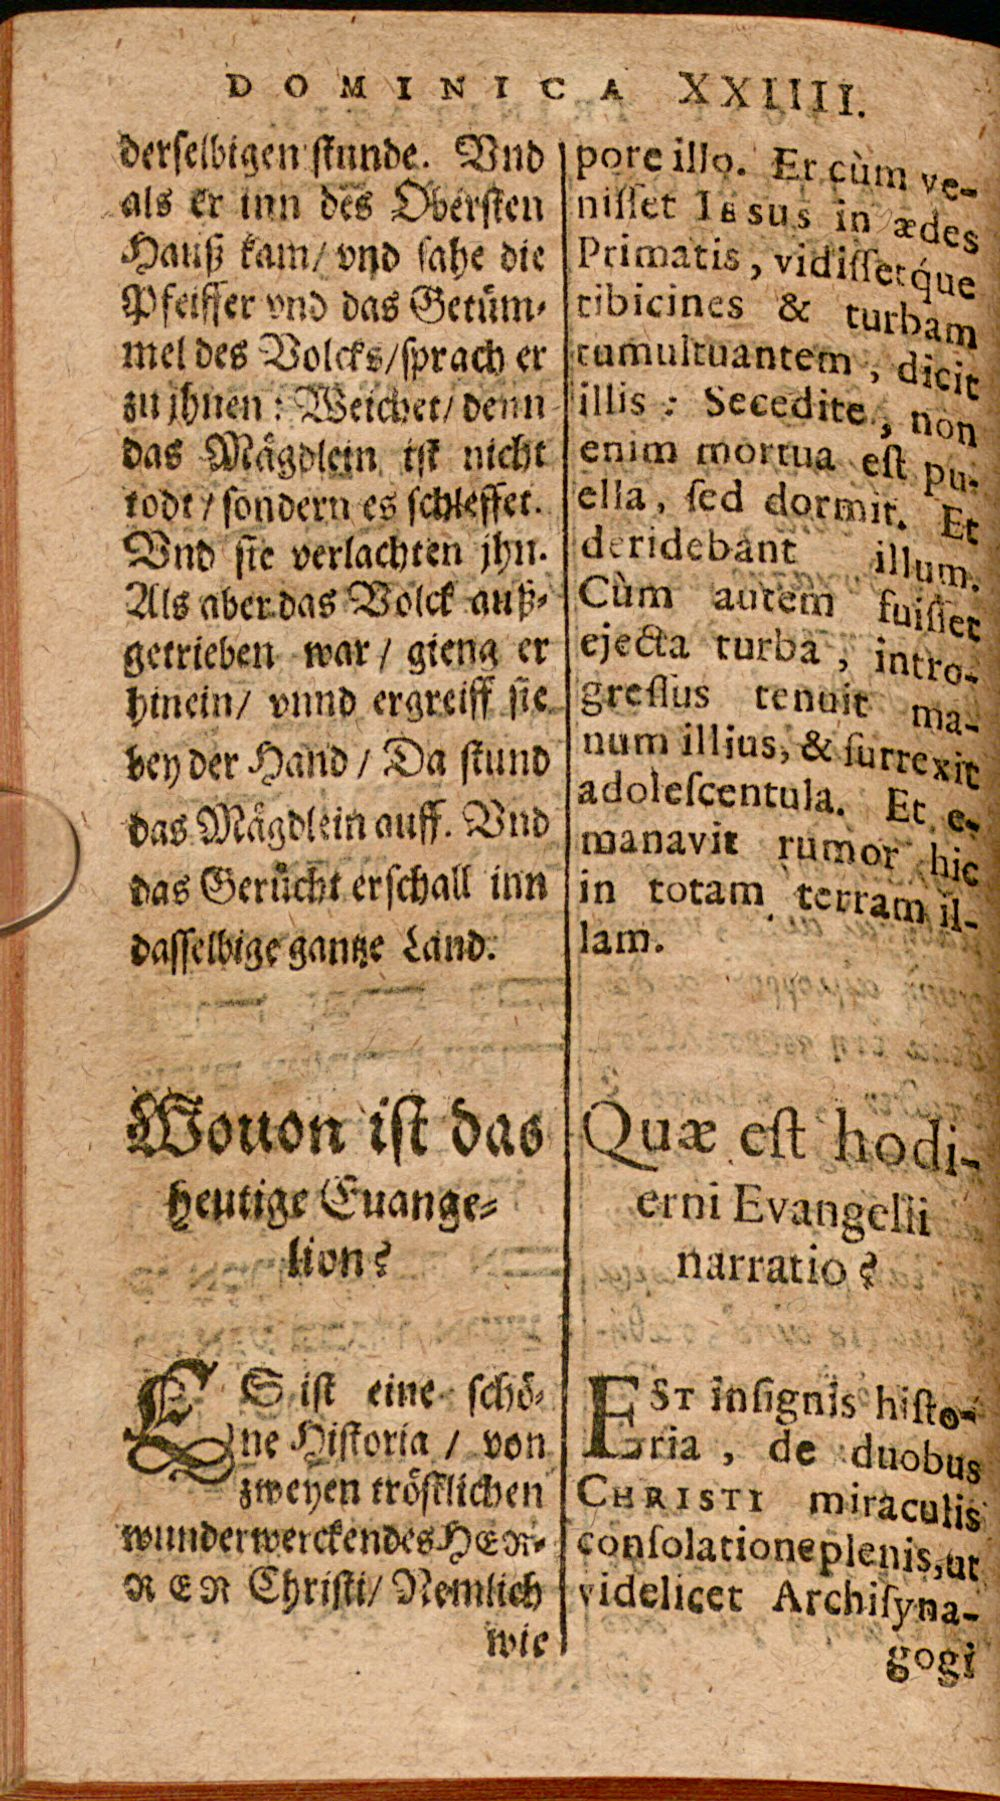 DOMINICA XXIIII.
derselbigen stunde. Vnd
als er inn des Obersten
Hauß kam/ vnd sahe die
Pfeiffer vnd das Getüm-
mel des Volcks/ sprach er
zu jhnen: Weichet/ denn
das Mägdlein ist nicht
todt/ sondern es schleffet.
Vnd sie verlachten jhn.
Als aber das Volck auß-
getrieben war/ gieng er
hinein/ vnnd ergreiff sie
bey der Hand/ Da stund
das Mägdlein auff. Vnd
das Gerücht erschall inn
dasselbige gantze Land.
Wouon ist das
heutige Euange-
lion?
ES ist eine schö-
ne Historia/ von
zweyen tröstlichen
wunderwercken des HER-
REN Christi/ Nemlich
wie
pore illo. Et cùm ve-
nisset Iesus in ædes
Primatis, vidissetq́ue
tibicines & turbam
tumultuantem, dicit
illis: Secedite, non
enim mortua est pu-
ella, sed dormit. Et
deridebant illum.
Cùm autem fuisset
ejecta turba, intro-
gressus tenuit ma-
num illius, & surrexit
adolescentula. Et e-
manavit rumor hic
in totam terram il-
lam.
Quæ est hodi-
erni Evangelii
narratio?
EST insignis histo-
ria, de duobus
CHRISTI miraculis
consolatione plenis, ut
videlicet Archisyna-
gogi